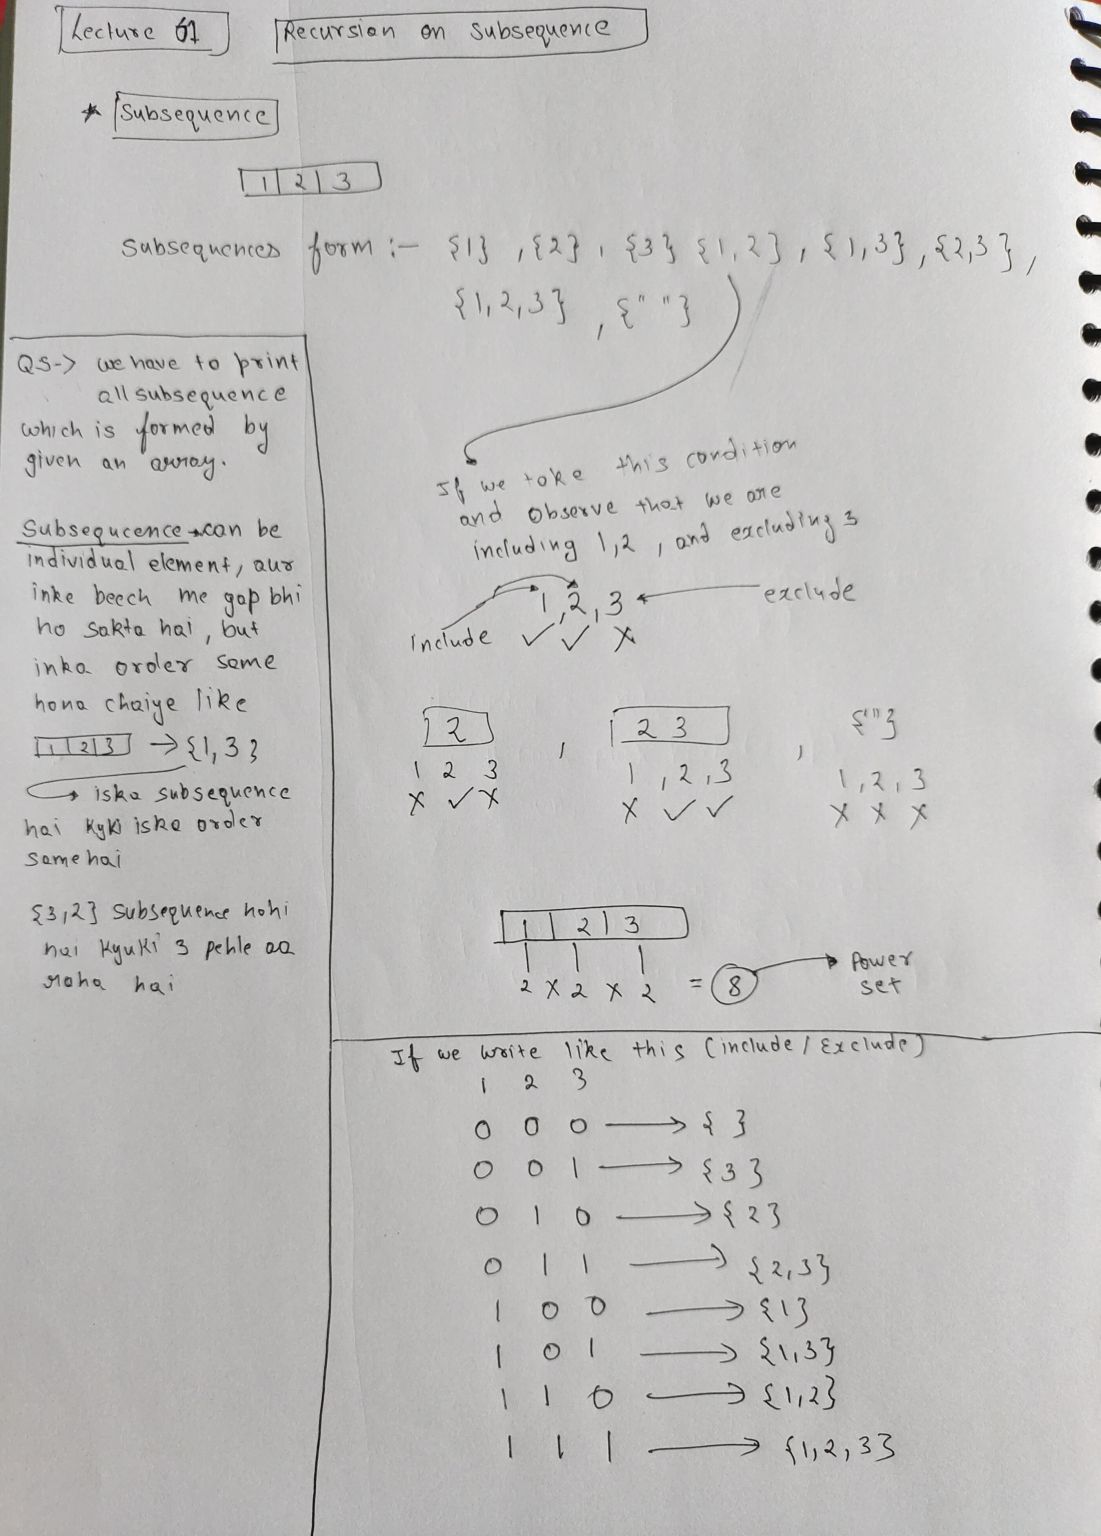 Lecture 61
Recursion on Subsequence
* Subsequence
1 | 2 | 3
Subsequences form :- {1} , {2} , {3} {1,2} , {1,3} , {2,3} ,
{1,2,3} , {" "}
QS-> we have to print
all subsequence
which is formed by
given an array.
Subsequcence → can be
individual element, aur
inke beech me gap bhi
ho sakta hai, but
inka order same
hona chaiye like
1 | 2 | 3 → {1,3}
iska subsequence
hai kyki iska order
same hai
{3,2} subsequence nohi
hai kyuki 3 pehle aa
raha hai
If we take this condition
and observe that we are
including 1,2 , and excluding 3
1,2,3 ← exclude
include ✓ ✓ X
2 , 2 3 , {""}
1 2 3 1 ,2,3 1,2,3
X ✓ X X ✓ ✓ X X X
1 | 2 | 3
2 X 2 X 2 = 8 → Power
set
If we write like this (include / Exclude)
1 2 3
0 0 0 → { }
0 0 1 → {3}
0 1 0 → {2}
0 1 1 → {2,3}
1 0 0 → {1}
1 0 1 → {1,3}
1 1 0 → {1,2}
1 1 1 → {1,2,3}